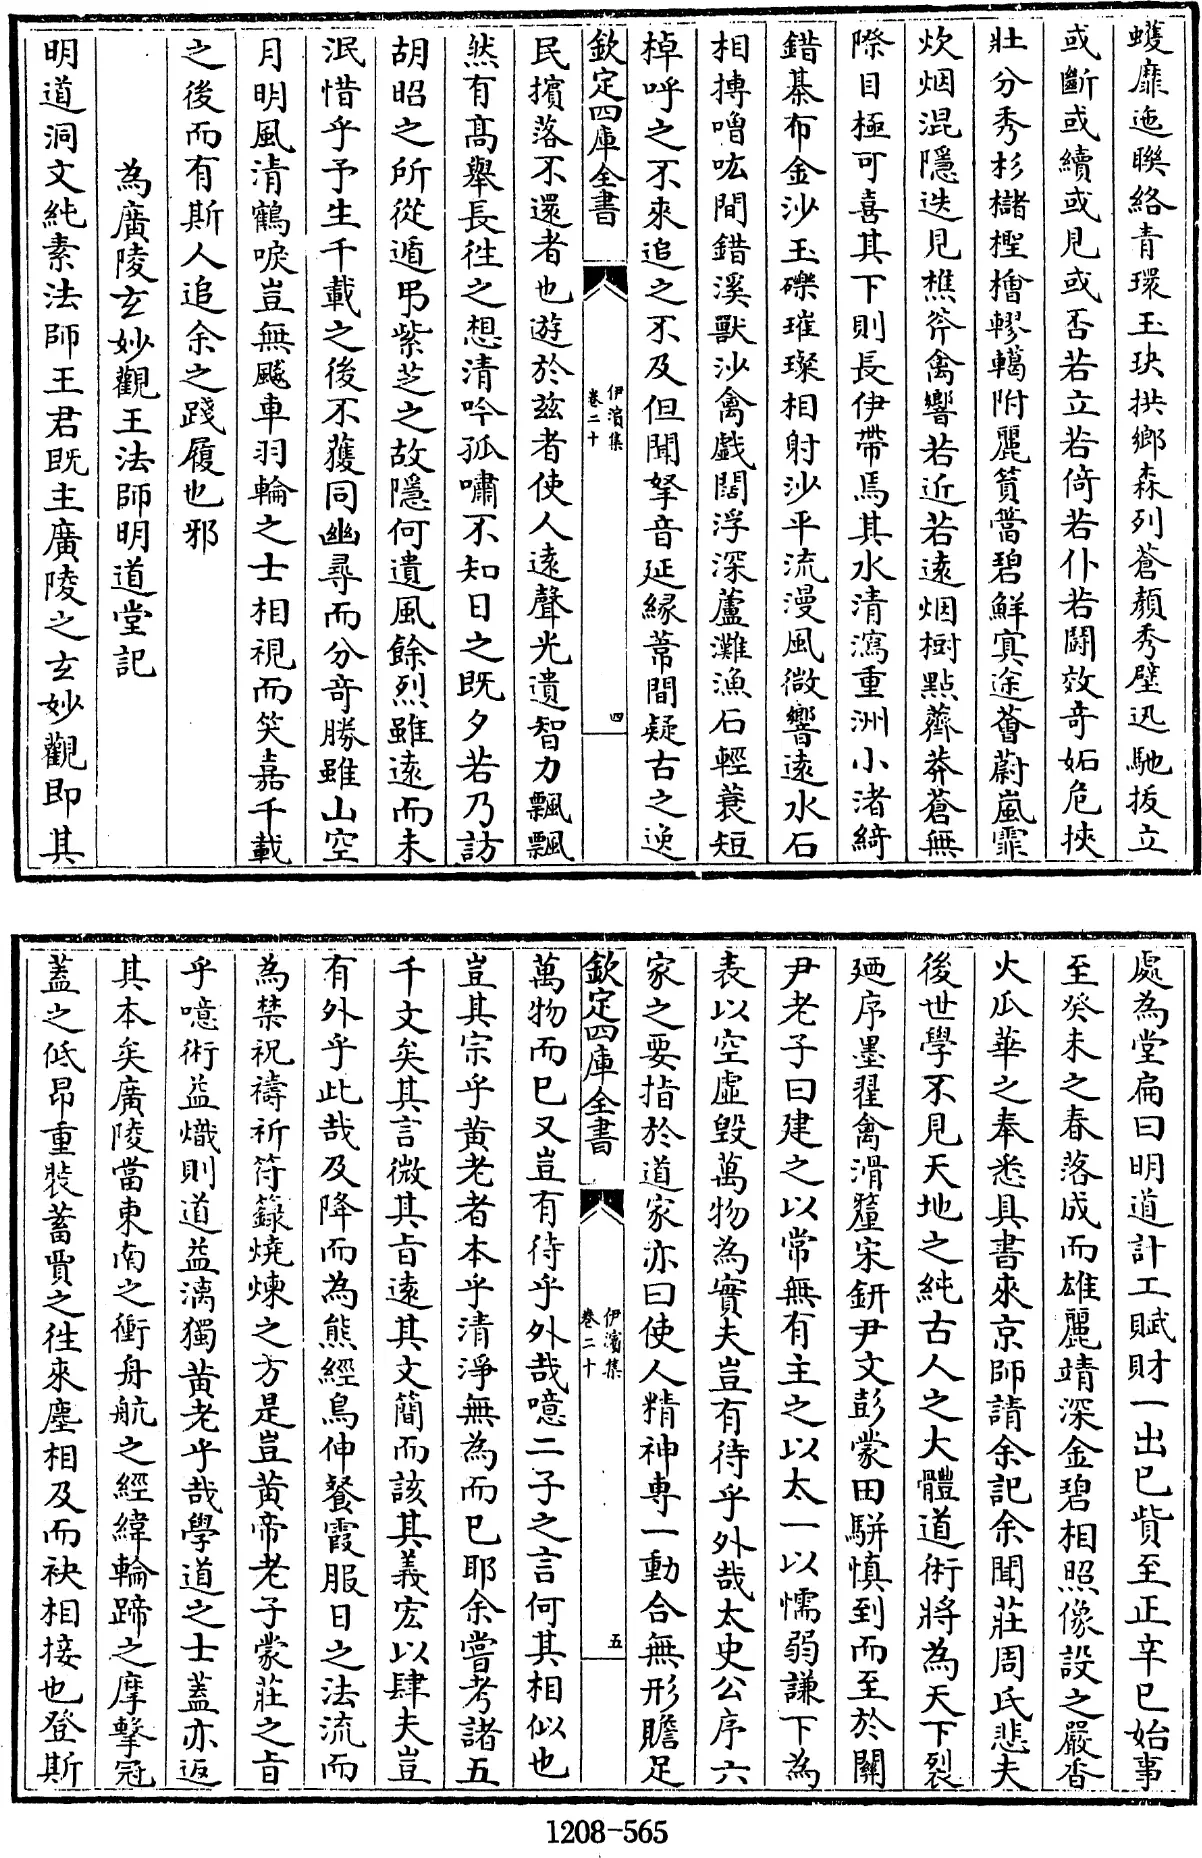 蠖靡迤聨絡青環玉玦拱鄉森列蒼顏秀壁迅馳拔立
或斷或續或見或否若立若倚若仆若鬭效竒妬危挾
壯分秀杉櫧檉檜轇轕附麗篔簹碧鮮寘途薈蔚嵐霏
炊烟混隱迭見樵斧禽響若近若遠烟樹點薺莽蒼無
際目極可喜其下則長伊帶焉其水清瀉重洲小渚綺
錯棊布金沙玉礫璀璨相射沙平流漫風微響遠水石
相搏噌吰間錯溪獸沙禽戲闊浮深蘆灘漁石輕蓑短
棹呼之不來追之不及但聞拏音延縁葦間疑古之逸
欽定四庫全書
伊濱集
卷二十
四
民擯落不還者也遊於兹者使人遠聲光遺智力飄飄
然有髙舉長徃之想清吟孤嘯不知日之既夕若乃訪
胡昭之所從遁弔紫芝之故隱何遺風餘烈雖逺而未
泯惜乎予生千載之後不獲同幽尋而分竒勝雖山空
月明風清鶴唳豈無飈車羽輪之士相視而笑嘉千載
之後而有斯人追余之踐履也邪
為廣陵玄妙觀王法師明道堂記
明道洞文純素法師王君既主廣陵之玄妙觀即其
處為堂扁曰明道計工賦財一出已貲至正辛巳始事
至癸未之春落成而雄麗靖深金碧相照像設之嚴香
火瓜華之奉悉具書來京師請余記余聞莊周氏悲夫
後世學不見天地之純古人之大體道術將為天下裂
廼序墨翟禽滑釐宋鈃尹文彭蒙田駢慎到而至於關
尹老子曰建之以常無有主之以太一以懦弱謙下為
表以空虛毀萬物為實夫豈有待乎外哉太史公序六
家之要指於道家亦曰使人精神専一動合無形贍足
欽定四庫全書
伊濱集
卷二十
五
萬物而已又豈有待乎外哉噫二子之言何其相似也
豈其宗乎黄老者本乎清淨無為而已耶余嘗考諸五
千文矣其言微其㫖遠其文簡而該其義宏以肆夫豈
有外乎此哉及降而為熊經鳥伸餐霞服日之法流而
為禁祝禱祈符籙燒煉之方是豈黄帝老子蒙莊之㫖
乎噫術益熾則道益漓獨黄老乎哉學道之士蓋亦返
其本矣廣陵當東南之衝舟航之經緯輪蹄之摩擊冠
蓋之低昂重裝蓄賈之徃來塵相及而袂相接也登斯
1208-565